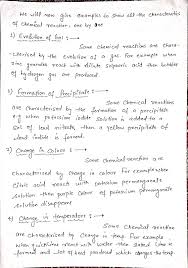 We will now give examples to show all the characteristics
of chemical reactions one by one
1) Evolution of Gas : →
Some chemical reactions are cha-
-cterised by the evolution of a gas. For example when
zinc granules react with dilute sulphuric acid then bubbles
of hydrogen gas are produced
2) Formation of Precipitate : →
Some chemical reactions
are characterised by the formation of a precipitate
e.g when potassium iodide solution is added to a
sol of lead nitrate, then a yellow precipitate of
lead iodide is formed.
3) Change in colour : →
Some chemical reaction are
characterised by change in colour For example when
citric acid react with potassium permanganate
solution then purple colour of potassium permanganate
solution disappear
4) Change in temperature : →
Some chemical reaction
are characterised by change in temp. For example
when quicklime react with water then slaked lime is
formed and lot of heat produced which changes the